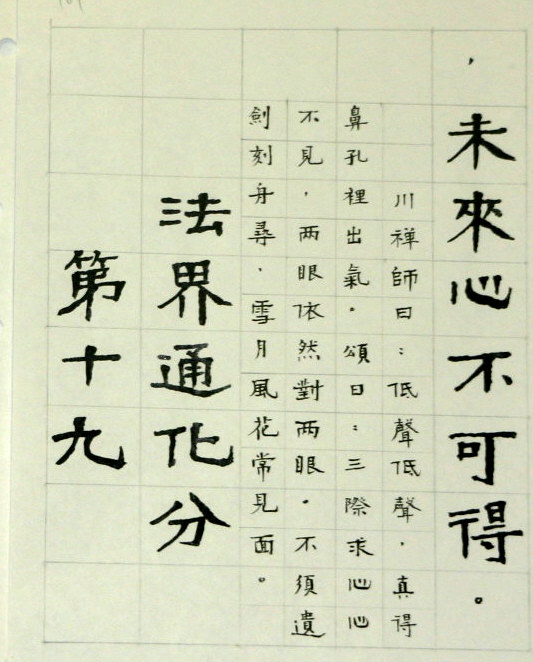 ，未來心不可得。
川禅師曰：低聲低聲，真得
鼻孔裡出氣。頌曰：三際求心心
不見，两眼依然對两眼。不須遺
劍刻舟尋，雪月風花常見面。
法界通化分
第十九